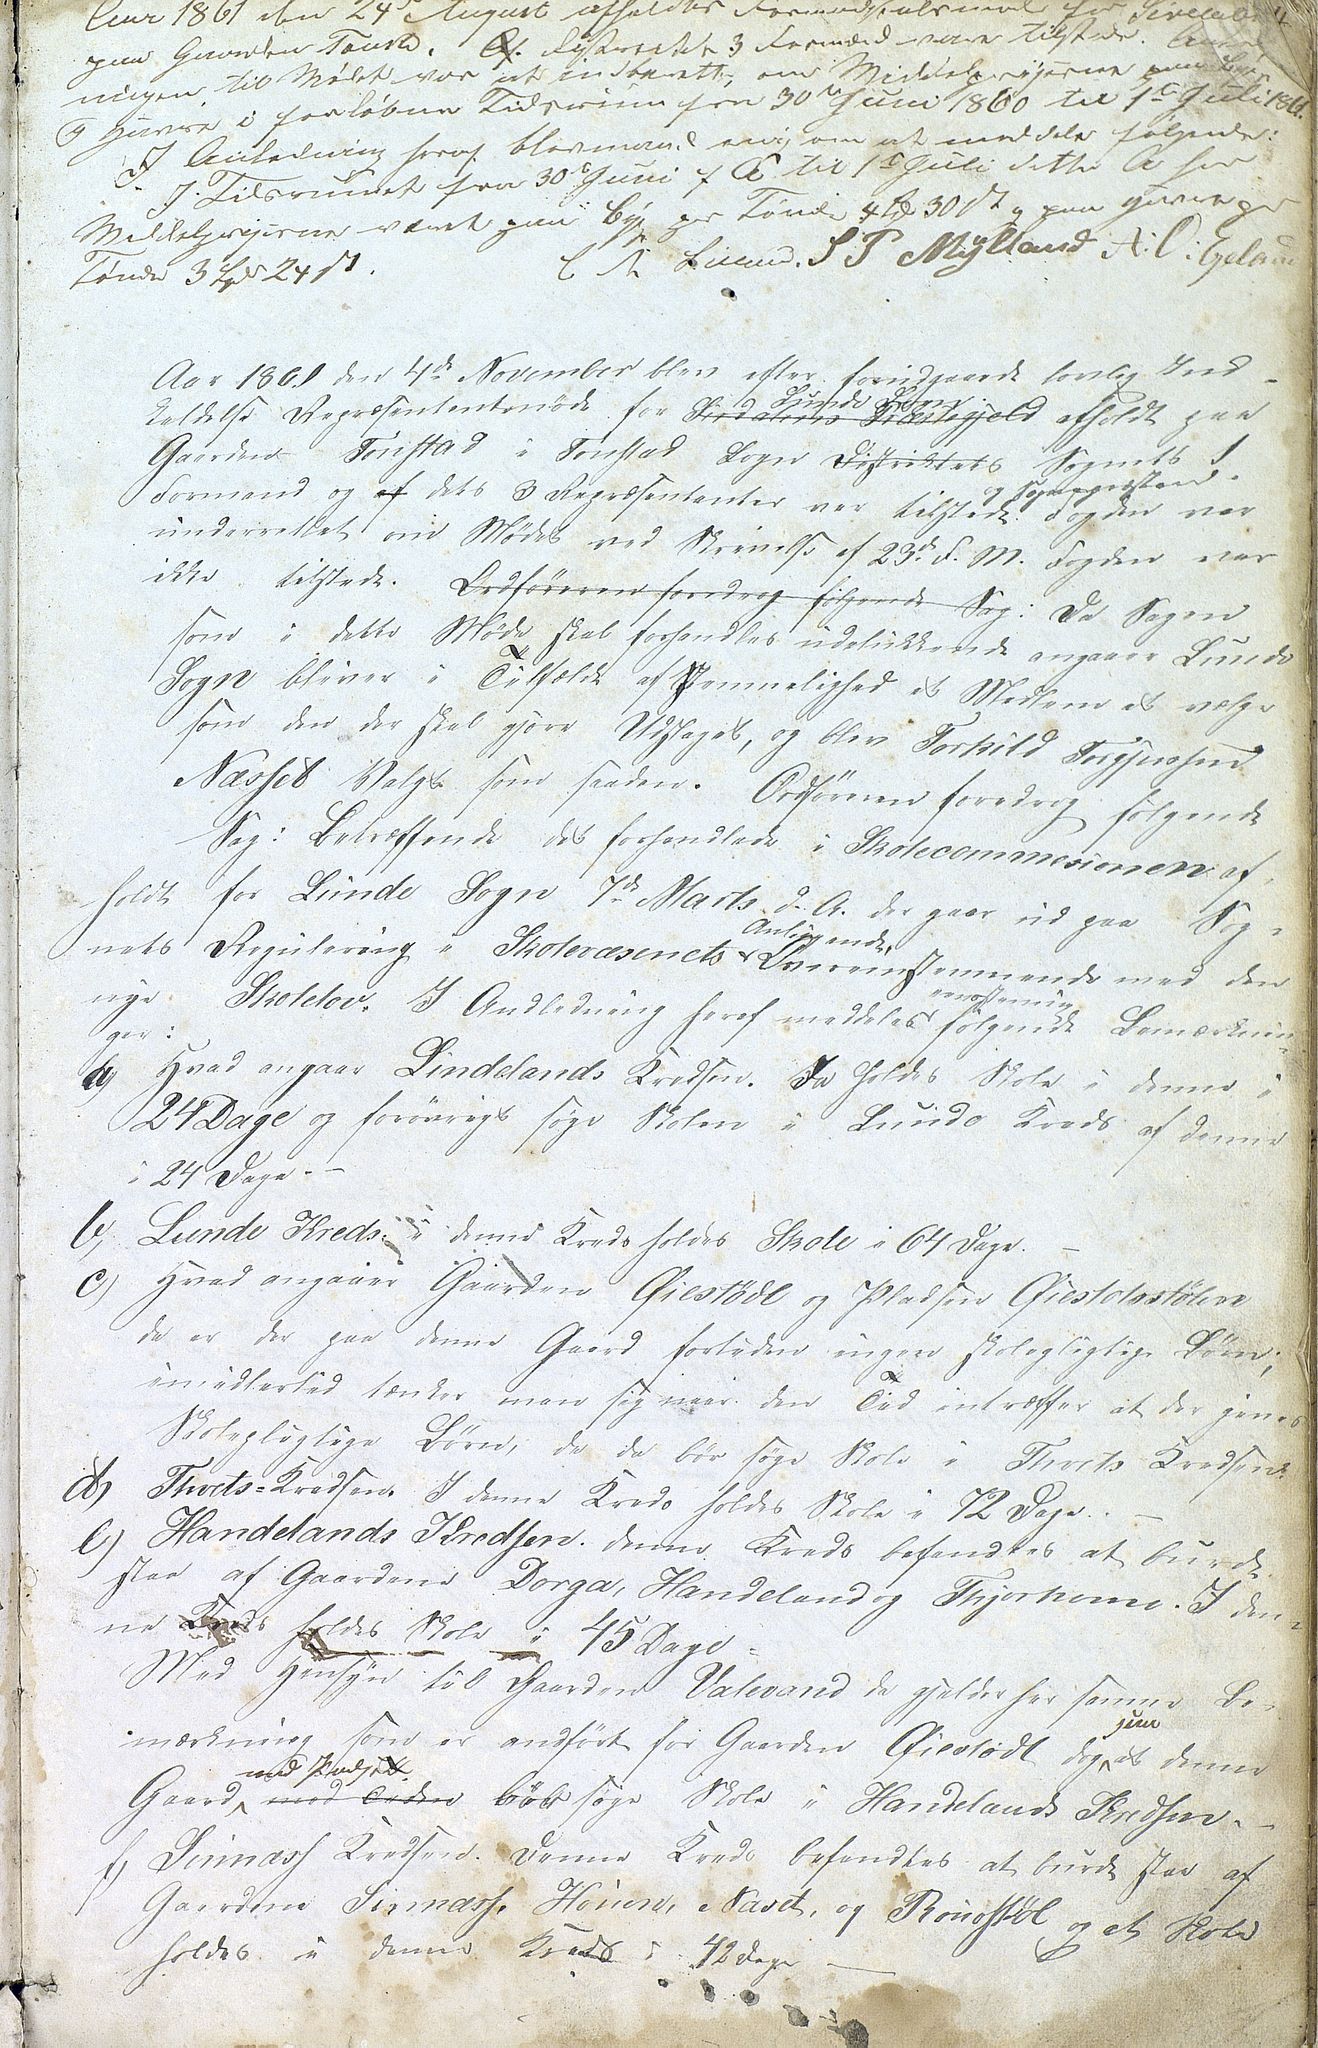 Aar 1861 den 24de August afholdtes Formandskabsmøde for Siredalen
paa Gaarden Tonstad. Af Distriktets 3 Formænd vare tilstede. Anled-
ningen til Mødet var at indberette om Middelpriserne paa Byg
og Havre i forløbne Tidsrum fra 30te Juni 1860 til 1ste Juli 1861.
I Anledning heraf blev man enig om at meddele følgende:
I Tidsrummet fra 30te Juni f A til 1ste Juli dette A har
Middelpriserne været paa Byg per Tønde 4 Spd 30 s og paa Havre per
Tønde 3 Spd 24 s.
S P Mylland A. O. Egeland
Aar 1861 den 4de November blev efter foregaaende lovlig Ind-
kaldelse Repræsententmøde for Siredalens Præstegjeld Lunde Sogn afholdt paa
Gaarden Tonstad i Tonstad Sogn Distriktets Sognets 1
Formand og af dets 3 Repræsentanter var tilstede. Fogden var og Sognepræsten
underrettet om Mødet ved Skrivelse af 23de f. M. Fogden var
ikke tilstede. Ordføreren foredrog følgende Sag: Da Sagen
som i dette Møde skal forhandles udelukkende angaaer Lunde
Sogn bliver i Tilfælde af Stemmelighed et Medlem at vælge
som den der skal gjøre Udslaget, og blev Torkild
Næsset valgt som saaden. Ordføreren foredrog følgende
Sag: Betræffende det forhandlede i Skolecommesionen af-
holdt for Lunde Sogn 7de Marts d. A. der gaar ud paa Sog-
nets Regulering i Skolevæsenets Anliggende, Overeinstemmende med den
nye Skolelov. I Andledning heraf meddeles eenstemig følgende Bemærknin-
ger:
a) Hvad angaar Lindelands Kredsen. Da holdes Skole i denne i
24 Dage og forøvrigt søge Skolen i Lunde Kreds af denne
i 24 Dage. —
b, Lunde Kreds. i denne Kreds holdes Skole i 64 Dage. —
c) Hvad angaaer Gaarden Øiestødl og Pladsen Øiestølsstølen
da er der paa denne Gaard fortiden ingen skolepligtige Børn;
imidlertid tænker man sig naar den Tid intræffer at der gives
Skolepligtige Børn, da de bør søge Skole i Tvets Kredsen.
d) Tvets-Kredsen. I denne Kreds holdes Skole i 72 Dage. —
e) Handelands Kredsen. denne Kreds befandtes at burde
staa af Gaardene Dorga, Handeland og Tjorhom. I den-
ne Kreds holdes Skole i 45 Dage -
Med Hensyn til Gaarden Valevand da gjelder her samme Be-
mærkning som er andført for Gaarden Øiestødl dog at denne
Gaard med Pladset med Tiden bør søge Skole i Handelands Kredsen. —
f) Sinnæss Kredsen. Denne Kreds befandtes at burde staa af
Gaardene Sinnæss, Høuen, Navet, og Rønostøl og at Skole
holdes i denne Kreds i 42 Dage —